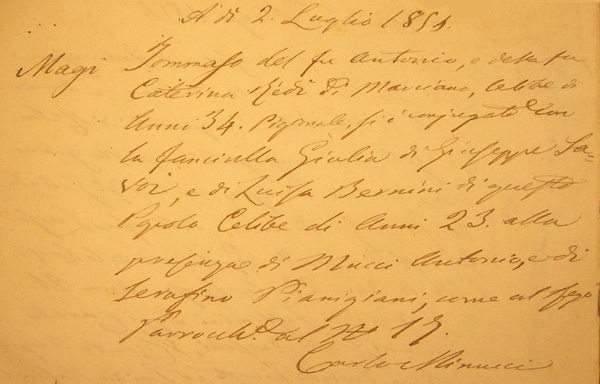 A dì 2. Luglio 1851.
Magi Tommaso del fu Antonio, e della fu
Caterina Redi di Marciano, Celibe di
Anni 34. Pigionale, si è conjugato con
la fanciulla Giulia di Giuseppe Sa=
voi, e di Luisa Bernini di questo
Popolo Celibe di Anni 23. alla
presenza di Mucci Antonio, e di
Serafino Pianigiani, come al
Parrocch.e al N° 17.
Carlo Minucci